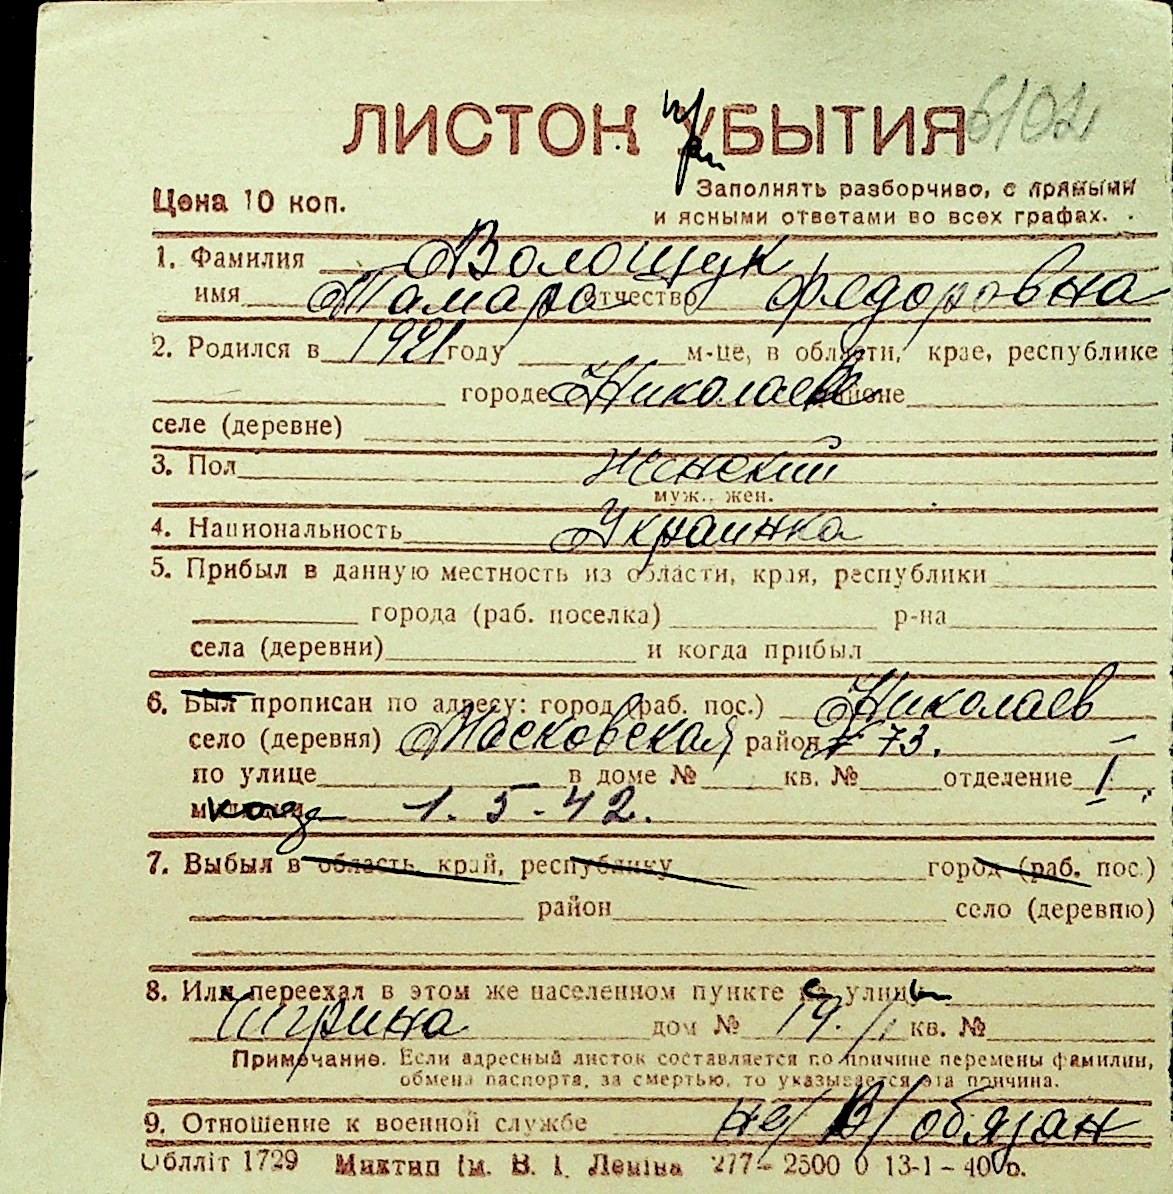 ЛИСТОК при УБЫТИЯ 6102
Цена 10 коп.
Заполнять разборчиво, с прямыми
и ясными ответами во всех графах.
1. Фамилия Волощук
имя Тамара отчество Федоровна
2. Родился в 1921 году м-це, в области, крае, республике
городе Николаеве районе
селе (деревне)
3. Пол женский
муж., жен.
4. Национальность Украинка
5. Прибыл в данную местность из области, края, республики
города (раб. поселка) р-на
села (деревни) и когда прибыл
6. Был прописан по адресу: город (раб. пос.) Николаев
село (деревня) Московская район № 73. –
по улице в доме № кв. № отделение I.
милиции когда 1. 5. - 42.
7. Выбыл в область, край, республику город (раб. пос.)
район село (деревню)
8. Или переехал в этом же населенном пункте с улицы
дом № 19. кв. №
Примечание. Если адресный листок составляется по причине перемены фамилии,
обмена паспорта, за смертью, то указывается эта причина.
9. Отношение к военной службе не/В/обязан
Облліт 1729 Миктип ім. В. І. Леніна 277 – 2500 0 13-1 – 40 р.